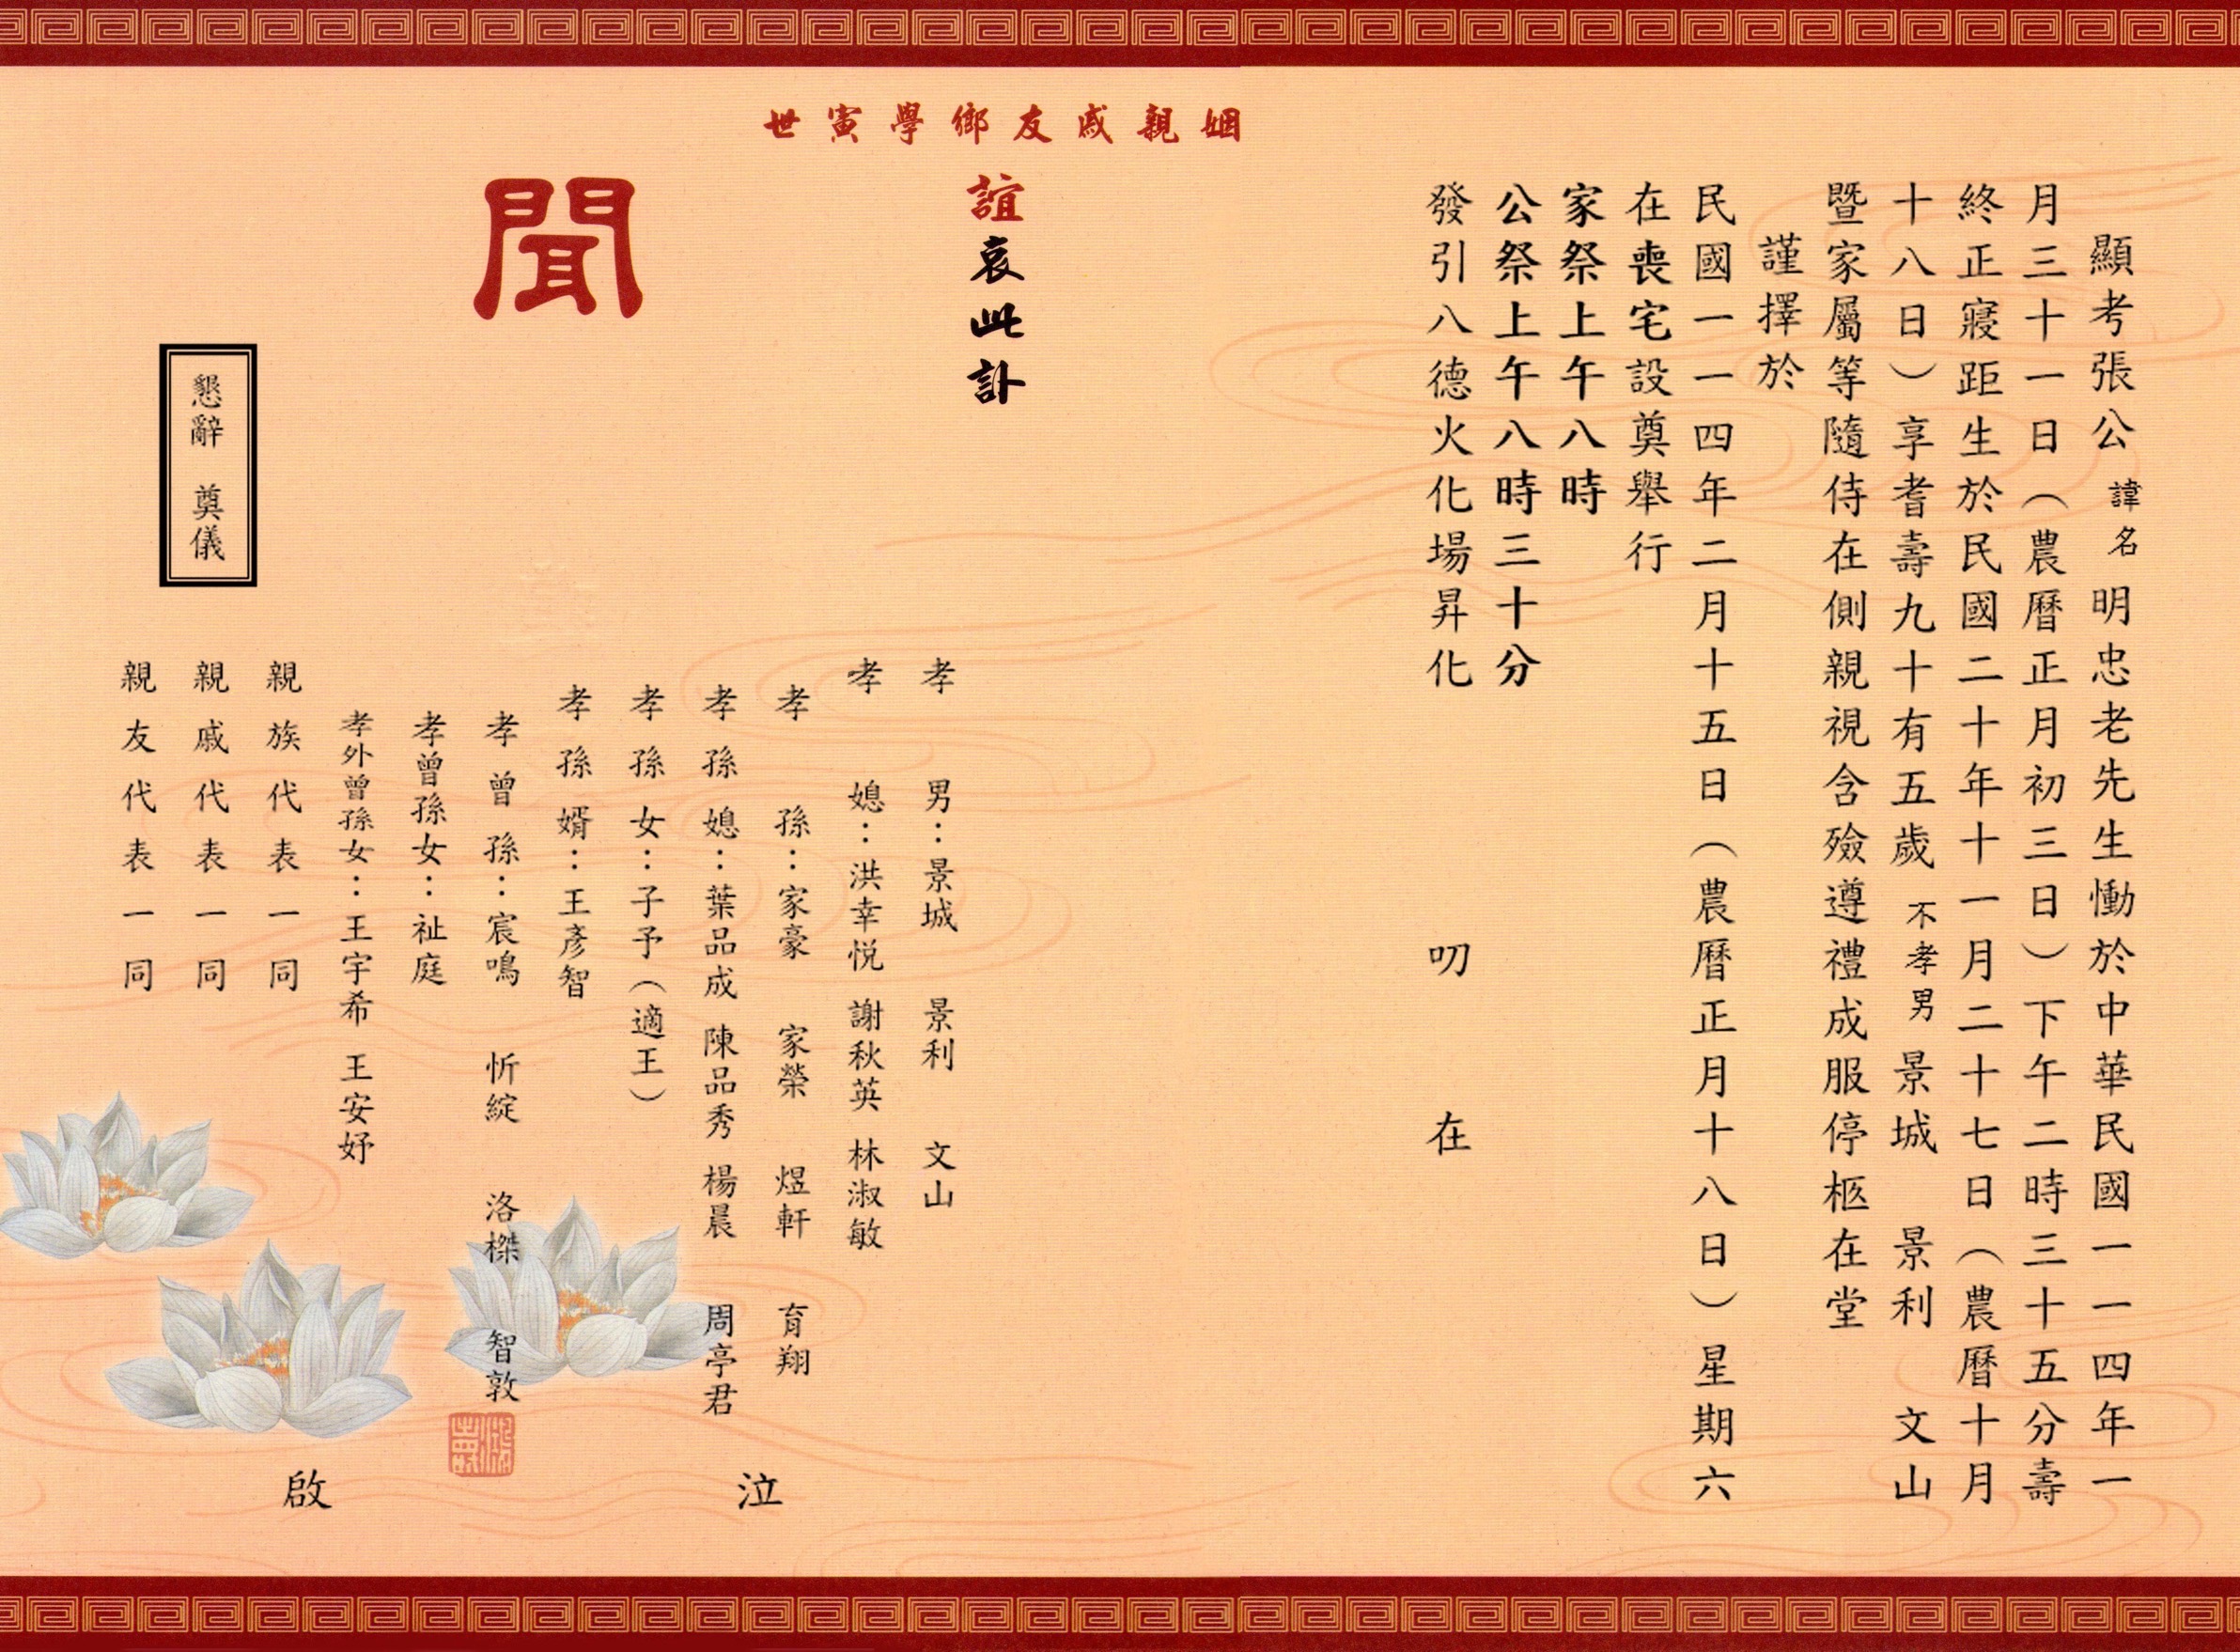 顯考張公 諱名 明忠老先生慟於中華民國一一四年一
月三十一日（農曆正月初三日）下午二時三十五分壽
終正寢距生於民國二十年十一月二十七日（農曆十月
十八日）享耆壽九十有五歲 不孝男 景城 景利 文山
暨家屬等隨侍在側親視含殮遵禮成服停柩在堂
謹擇於
民國一一四年二月十五日（農曆正月十八日）星期六
在喪宅設奠舉行
家祭上午八時
公祭上午八時三十分
發引八德火化場昇化 叨 在
姻親戚友鄉學寅世
誼哀此訃
聞
孝 男：景城 景利 文山
孝 媳：洪幸悦 謝秋英 林淑敏
孝 孫：家豪 家榮 煜軒 育翔
孝孫媳：葉品成 陳品秀 楊晨 周亭君
泣
孝孫女：子予（適王）
孝孫婿：王彥智
孝曾孫：宸鳴 忻綻 洛榤 智敦
孝曾孫女：祉庭
孝外曾孫女：王宇希 王安妤
啟
親族代表一同
親戚代表一同
親友代表一同
懇辭 奠儀